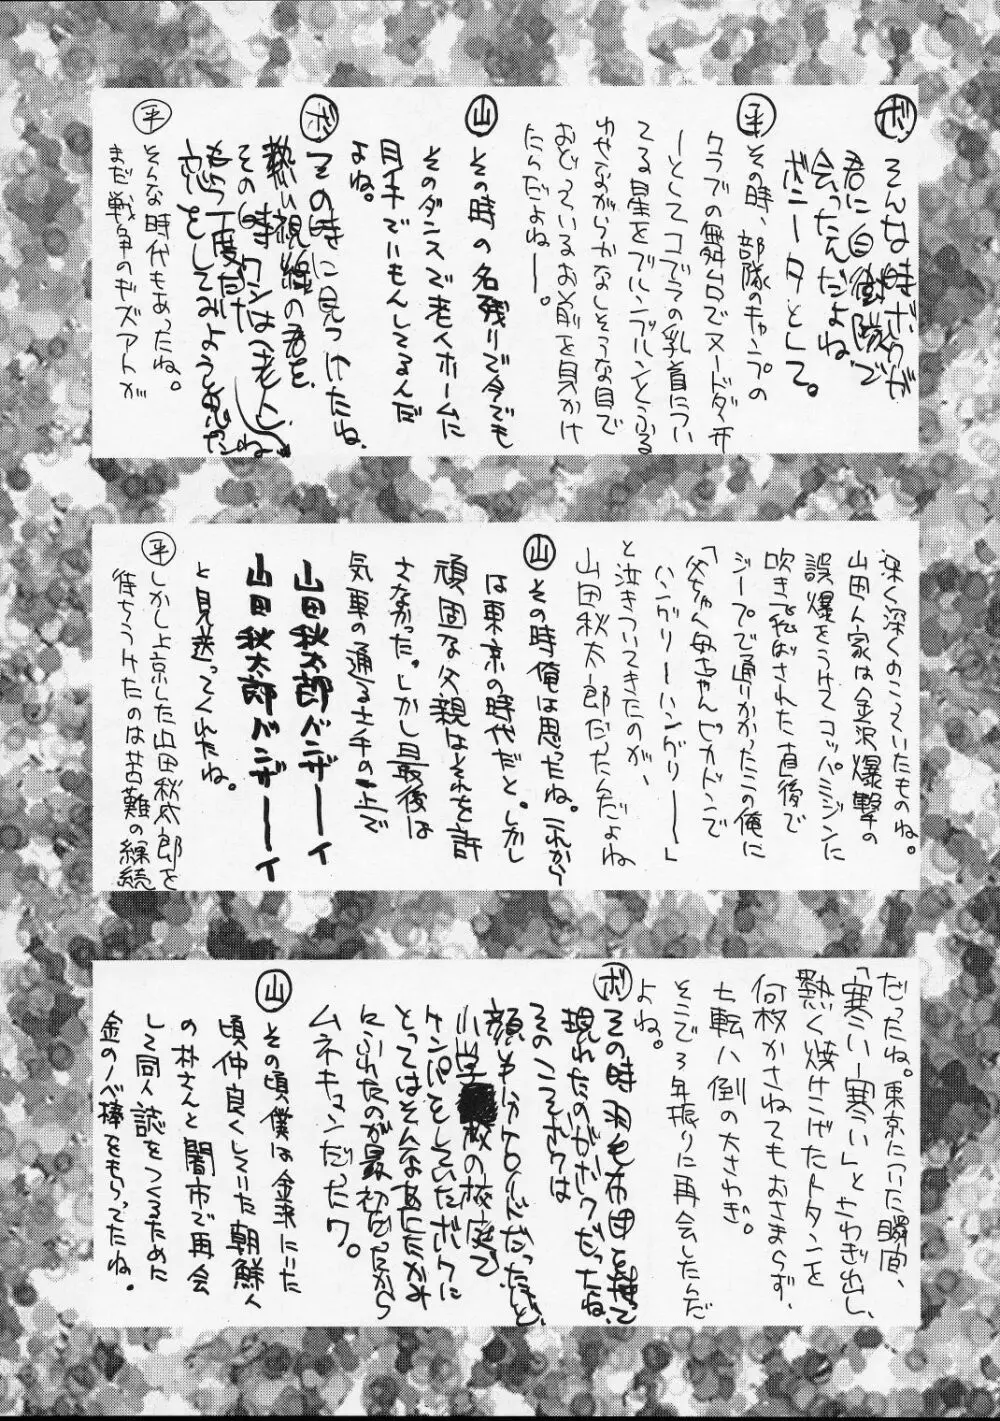 ボ そんな時ボクが
君に白樹隊で
会ったんだよね
ボニータとして。
平 その時、部隊のキャンプの
クラブの舞台でヌードダンサ
ーとしてコテラの乳首につい
てる星をブルンブルンとふる
わせながらかなしそうな目で
おどっているお前を見かけ
たらだよねー。
山 その時の名残りで今でも
そのダンスで老人ホームに
目手でいもんしてるんだ
よね。
ボ その時に見つけたね
熱い視線の君を、
その時ワシは老人、ね
もう一度だけ
恋をしてみようと思った
平 そんな時代もあったね。
まだ戦争のキズアトが
深く深くのこっていたものね。
山田人家は金沢爆撃の
誤爆をうけてコッパミジンに
吹き飛ばされた直後で
ジープで通りかかったこの俺に
「父ちゃん母ちゃんピカドンで
ハングリーハングリー――」
と泣きついてきたのが、
山田秋太郎だったんだよね
山 その時俺は思ったね。これから
は東京の時代だと。しかし
頑固な父親はそれを許
さなかった。しかし最後は
気車の通る土手の上で
山田秋太郎バンザーーイ
山田秋太郎バンザーーイ
と見送ってくれたね。
平 しかし上京した山田秋太郎を
待ちうけたのは苦難の継続
だったね。東京についた瞬間、
「寒うい―寒うい」とさわぎ出し、
熱く焼けこげたトタンを
何枚かさねてもおさまらず、
七転八倒の大さわぎ。
そこで3年振りに再会したんだ
よね。
ボ その時羽毛布団と持って
現れたのがボクだったね、
そのころボクは
顔しか分からなかったけど、
小学校の校庭で
ケンパをしていたボクに
とってはそんなあたたかみ
にふれたのが最初だったから
ムネキュンだったワ。
山 その頃僕は金来にいた
頃仲良くしていた朝鮮人
の朴さんと闇市で再会
して同人誌をつくるために
金のノベ棒をもらってたね。